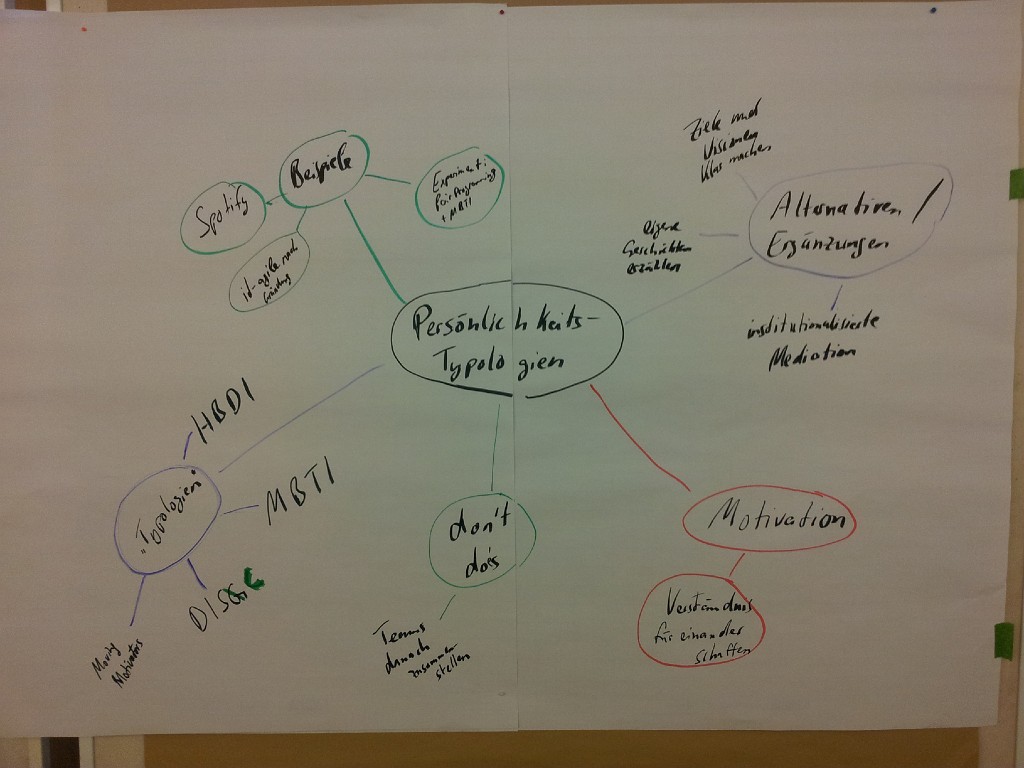 Persönlichkeits-
Typologien
Beispiele
Spotify
it-agile nach
Gründung
Experiment:
Pair Programming
+ MBTI
Alternativen /
Ergänzungen
Ziele und
Visionen
klar machen
eigene
Geschichten
erzählen
institutionalisierte
Mediation
Motivation
Verständnis
für einander
schaffen
don't
do's
Teams
danach
zusammen
stellen
"Typologien"
HBDI
MBTI
DISC
Moving
Motivators